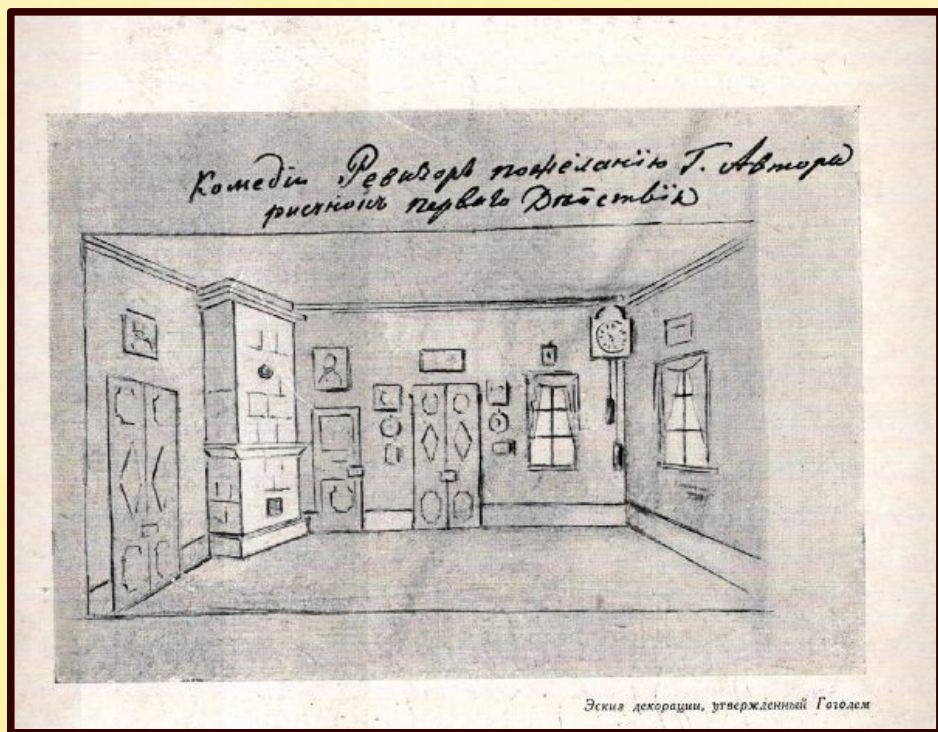 Комедіи Ревизоръ пожеланію Г. Автора
рисунокъ перваго Дѣйствія
Эскиз декорации, утвержденный Гоголем